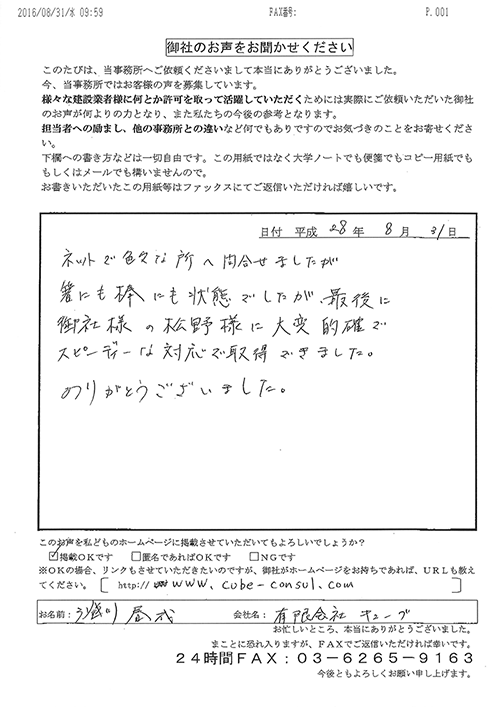 2016/08/31/水 09:59 FAX番号: P.001
御社のお声をお聞かせください
このたびは、当事務所へご依頼くださいまして本当にありがとうございました。
今、当事務所ではお客様の声を募集しています。
様々な建設業者様に何とか許可を取って活躍していただくためには実際にご依頼いただいた御社
のお声が何よりの力となり、また私たちの今後の参考となります。
担当者への励まし、他の事務所との違いなど何でもありですのでお気づきのことをお寄せくださ
い。
下欄への書き方などは一切自由です。この用紙ではなく大学ノートでも便箋でもコピー用紙でも
もしくはメールでも構いませんので。
お書きいただいたこの用紙等はファックスにてご返信いただければ嬉しいです。
日付 平成 28年 8月 31日
ネットで色々な所へ問合せましたが
箸にも棒にも状態でしたが、最後に
御社様の松野様に大変的確で
スピーディーな対応で取得できました。
ありがとうございました。
このお声を私どものホームページに掲載させていただいてもよろしいでしょうか?
☑掲載OKです □匿名であればOKです □NGです
※OKの場合、リンクもさせていただきたいのですが、御社がホームページをお持ちであれば、URLも教え
てください。[ http:// www.cube-consul.com ]
お名前: 会社名: 有限会社 キューブ
お忙しいところ、本当にありがとうございました。
まことに恐れ入りますが、FAXでご返信いただければ幸いです。
24時間FAX:03-6265-9163
今後ともよろしくお願い申し上げます。